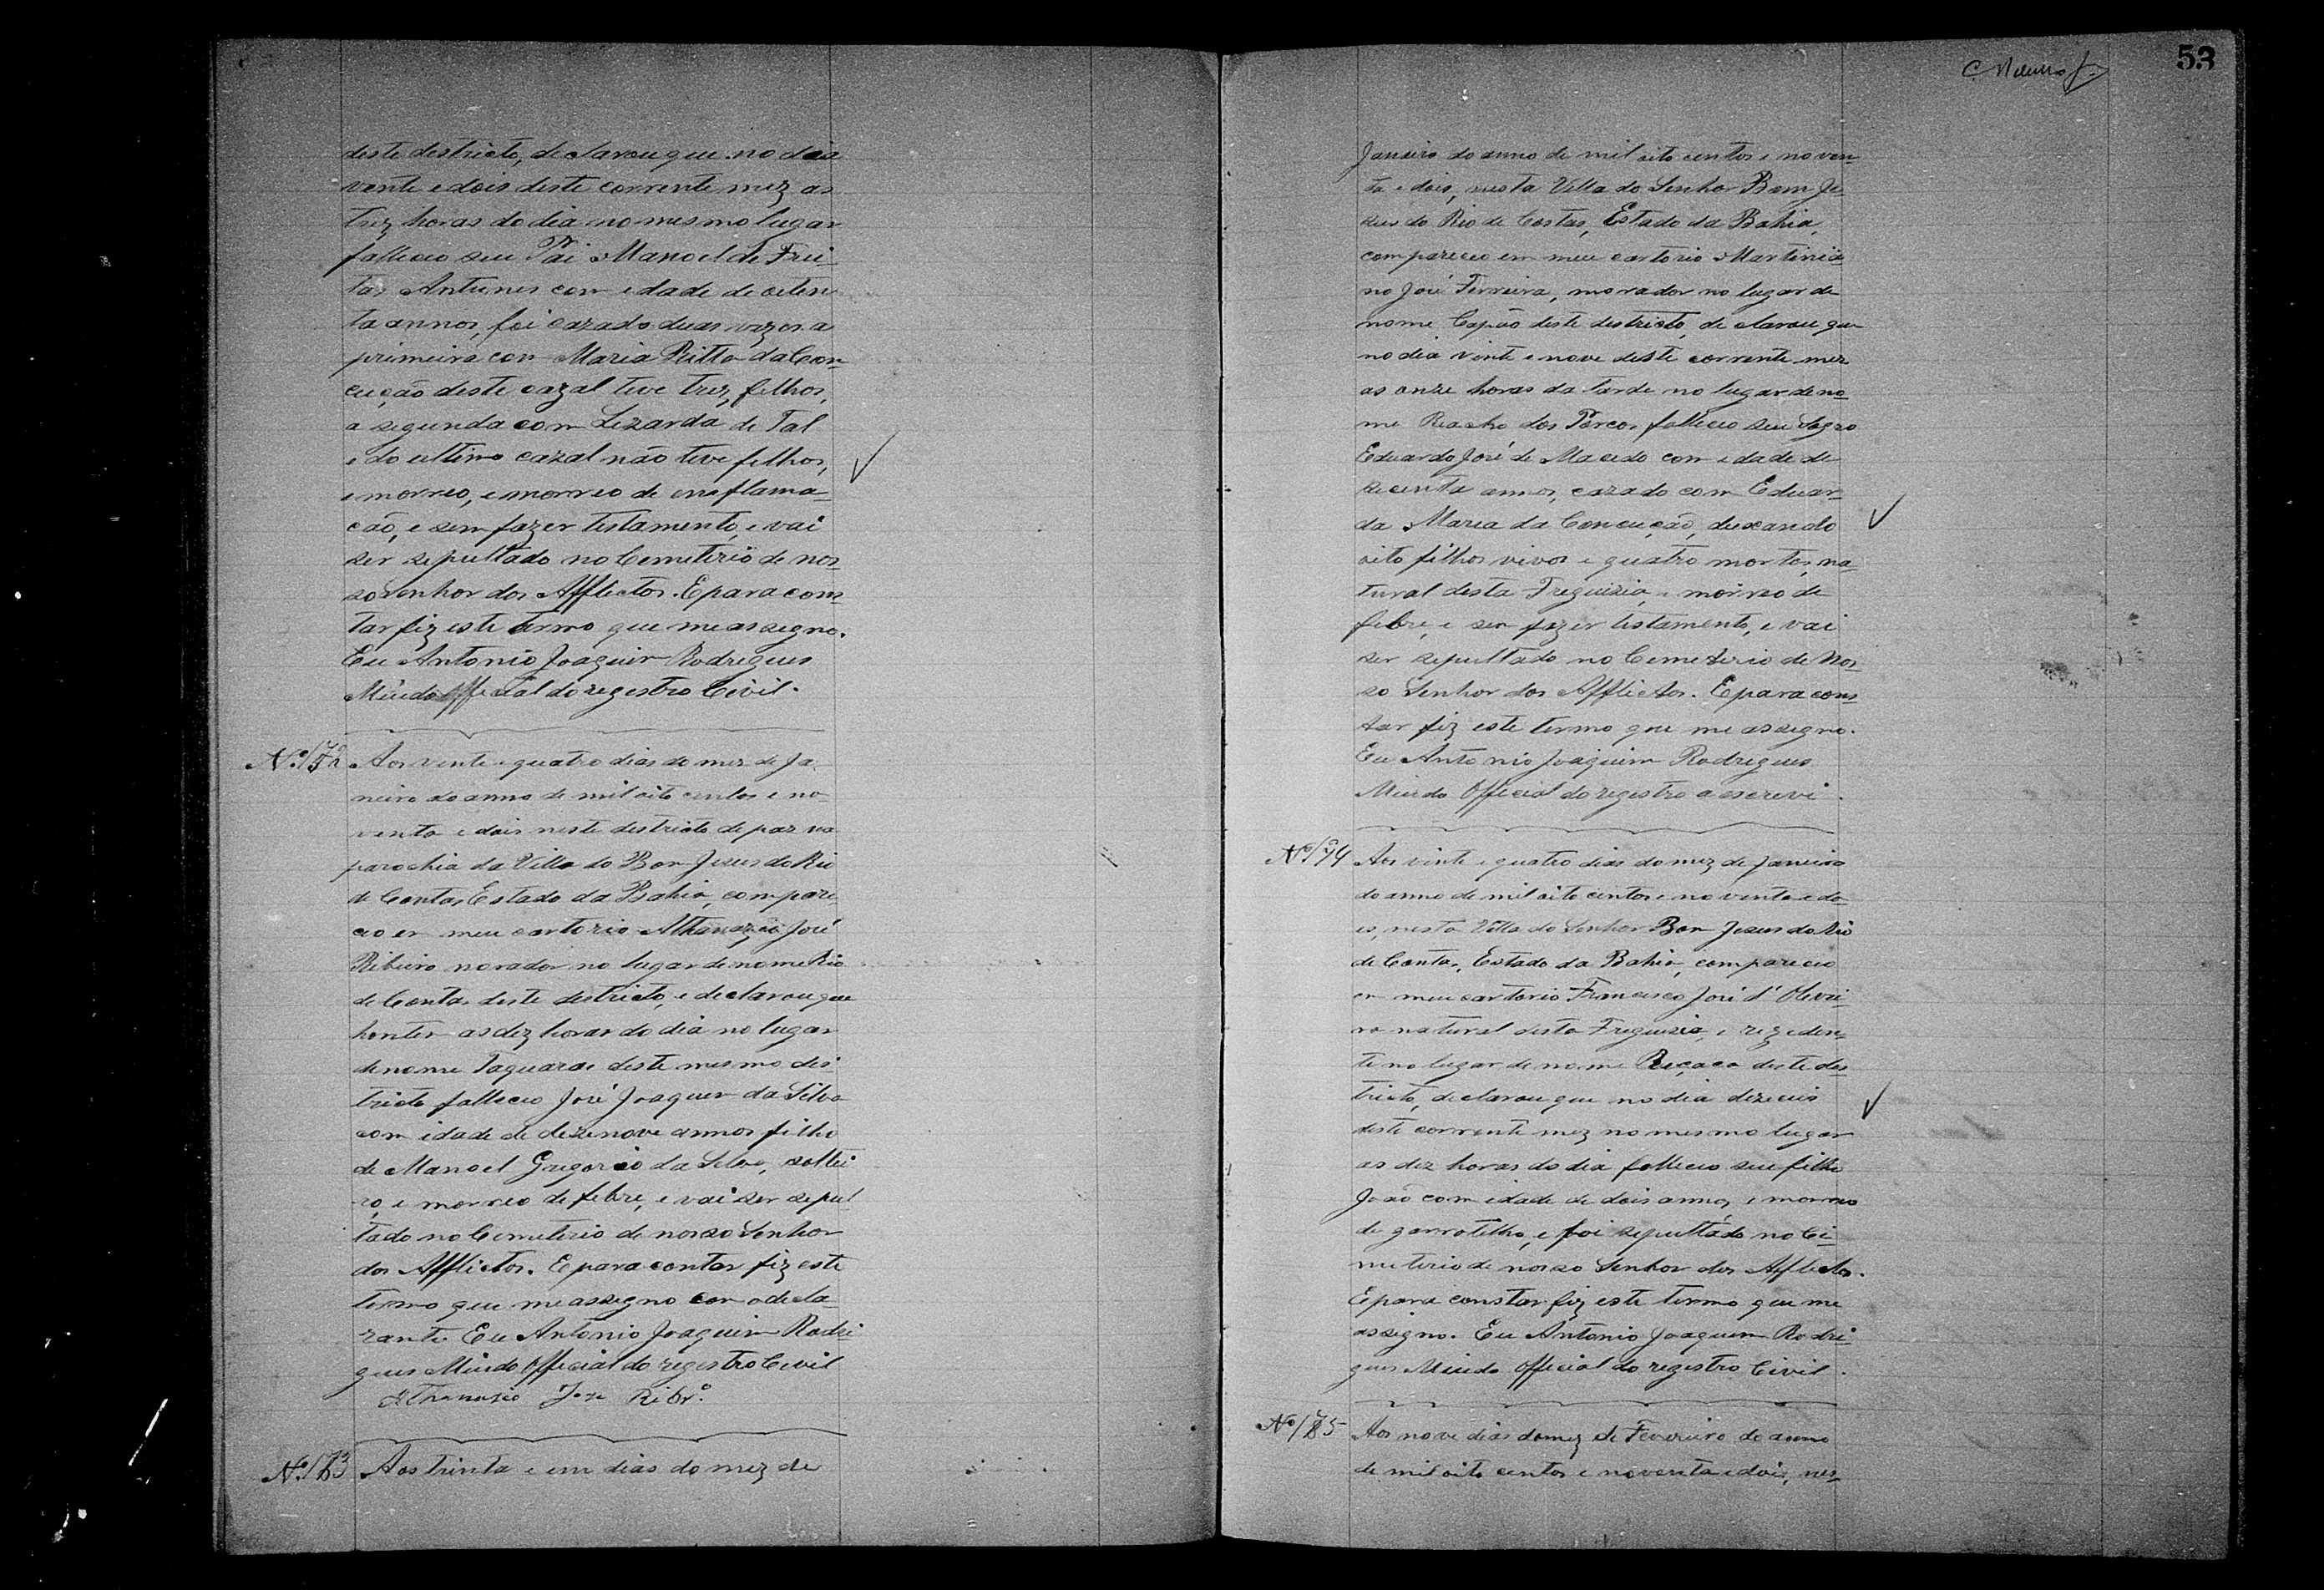 deste destricto, declarou que no dia
vente e dois deste corrente mez as
trez horas do dia no mesmo lugar
falleceo seu Pai Manoel de Frei-
tas Antunes com edade de oiten
ta annos, foi cazado duas vezes a
primeira com Maria Ritta da Con-
ceição deste cazal teve trez filhos,
a segunda com Lizarda de Tal
e do ultimo cazal não teve filhos,
e morreo, e morreo de enaflama-
cão, e sem fazer testamento, e vai
ser sepultado no Cemeterio de nos-
so Senhor dos Afflictos. E para cons-
tar fiz este termo que me assegno.
Eu Antonio Joaquim Rodrigues
Miudo Official do regestro Civil.
Nº 172 Aos vente e quatro dias do mez de Ja-
neiro do anno de mil oito centos e no-
venta e dois neste destricto de paz na
parochia da Villa do Bom Jesus do Rio
de Contas Estado da Bahia, compare-
ceo em meu cartorio Athanazio José
Ribeiro morador no lugar de nome Rio
de Contas deste destricto, e declarou que
hontem as dez horas do dia no lugar
de nome Taquaras deste mesmo des-
tricto falleceo José Joaquim da Silva
com idade de dezenove annos filho
de Manoel Gregorio da Silva, soltei
ro, e morreo de febre, e vai ser sepul
tado no Cemeterio de nosso Senhor
dos Afflictos. E para contar fiz este
termo que me assegno com o decla-
rante Eu Antonio Joaquim Rodri
gues Miudo Official do regestro Civil
Athanazio Jose Ribrº
Nº 173 Aos trinta e um dias do mez de
53
Janeiro do anno de mil oito centos e noven-
ta e dois, nesta Villa do Senhor Bom Je-
sus do Rio de Contas, Estado da Bahia,
compareceo em meu cartorio Martinia-
no José Ferreira, morador no lugar de
nome Capão deste destricto, declarou que
no dia vinte e nove deste corrente mez
as onze horas da tarde no lugar de no-
me Reacho dos Porcos falleceo seu Sogro
Eduardo José de Macedo com edade de
secenta annos, cazado com Eduar-
da Maria da Conceição, deixando
oito filhos vivos e quatro mortos, na-
tural desta Freguizia, e morreo de
febre, e sem fazer testamento, e vai
ser sepultado no Cemeterio de Nos-
so Senhor dos Afflictos. E para cons-
tar fiz este termo que me assegno.
Eu Antonio Joaquim Rodrigues
Miudo Official do regestro o escrevi.
Nº 174 Aos vinte e quatro dias do mez de Janeiro
do anno de mil oito centos e noventa e do-
is, nesta Villa do Senhor Bom Jesus do Rio
de Contas, Estado da Bahia, compareceo
em meu cartorio Francisco José d'Olivei-
ra natural desta Freguizia, e rezeden-
te no lugar de nome deste des-
tricto, declarou que no dia dezeceis
deste corrente mez no mesmo lugar
as dez horas do dia falleceo seu filho
João com idade de dois annos, e morreo
de garrotilho, e foi sepultado no Ce-
meterio de nosso Senhor dos Afflictos.
E para constar fiz este termo que me
assigno. Eu Antonio Joaquim Rodri
gues Miudo Official do regestro Civil.
Nº 175 Aos nove dias do mez de Fevereiro do anno
de mil oito centos e noventa e dois, nes-